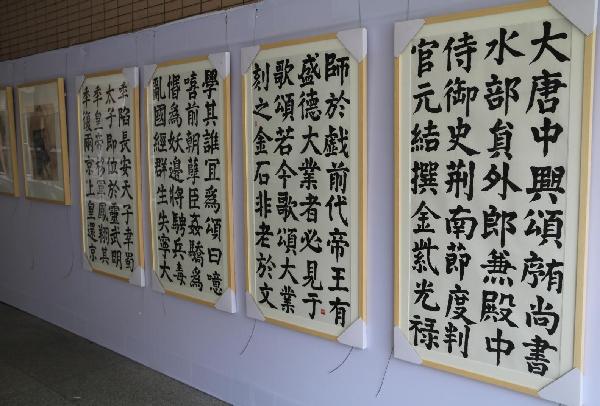 大唐中興頌有序尚書
水部員外郎兼殿中
侍御史荊南節度判
官元結撰金紫光祿
師於戲前代帝王有
盛德大業者必見于
歌頌若今歌頌大業
刻之金石非老於文
學其誰宜爲頌曰噫
嘻前朝孽臣姦驕爲
惛爲妖邊將騁兵毒
亂國經群生失寧大
秊陷長安天子幸蜀
太子即位於靈武明
秊皇帝移軍鳳翔其
秊復兩京上皇還京